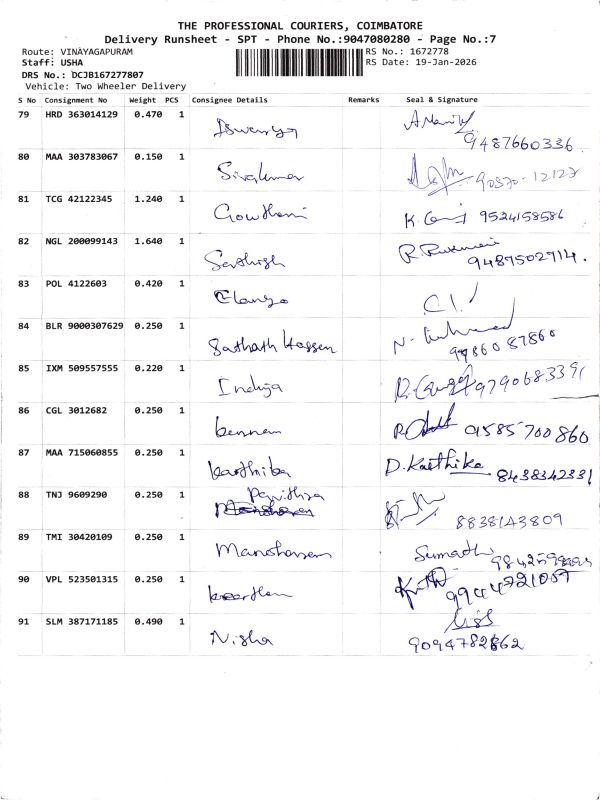 THE PROFESSIONAL COURIERS, COIMBATORE
Delivery Runsheet - SPT - Phone No.:9047080280 - Page No.:7
Route: VINAYAGAPURAM RS No.: 1672778
Staff: USHA RS Date: 19-Jan-2026
DRS No.: DCJB167277807
Vehicle: Two Wheeler Delivery
S No Consignment No Weight PCS Consignee Details Remarks Seal & Signature
79 HRD 363014129 0.470 1
9487660336
80 MAA 303783067 0.150 1
Sivakumar
81 TCG 42122345 1.240 1
Gowthami K. 9524158586
82 NGL 200099143 1.640 1
Sathish 9487502714.
83 POL 4122603 0.420 1
Elango
84 BLR 9000307629 0.250 1
Sathath Hassen N.
85 IXM 509557555 0.220 1
Induja 9790683391
86 CGL 3012682 0.250 1
87 MAA 715060855 0.250 1
D. Karthika
8438342331
88 TNJ 9609290 0.250 1 Pavithra
8838143809
89 TMI 30420109 0.250 1
Sumathi
90 VPL 523501315 0.250 1
91 SLM 387171185 0.490 1
Nisha